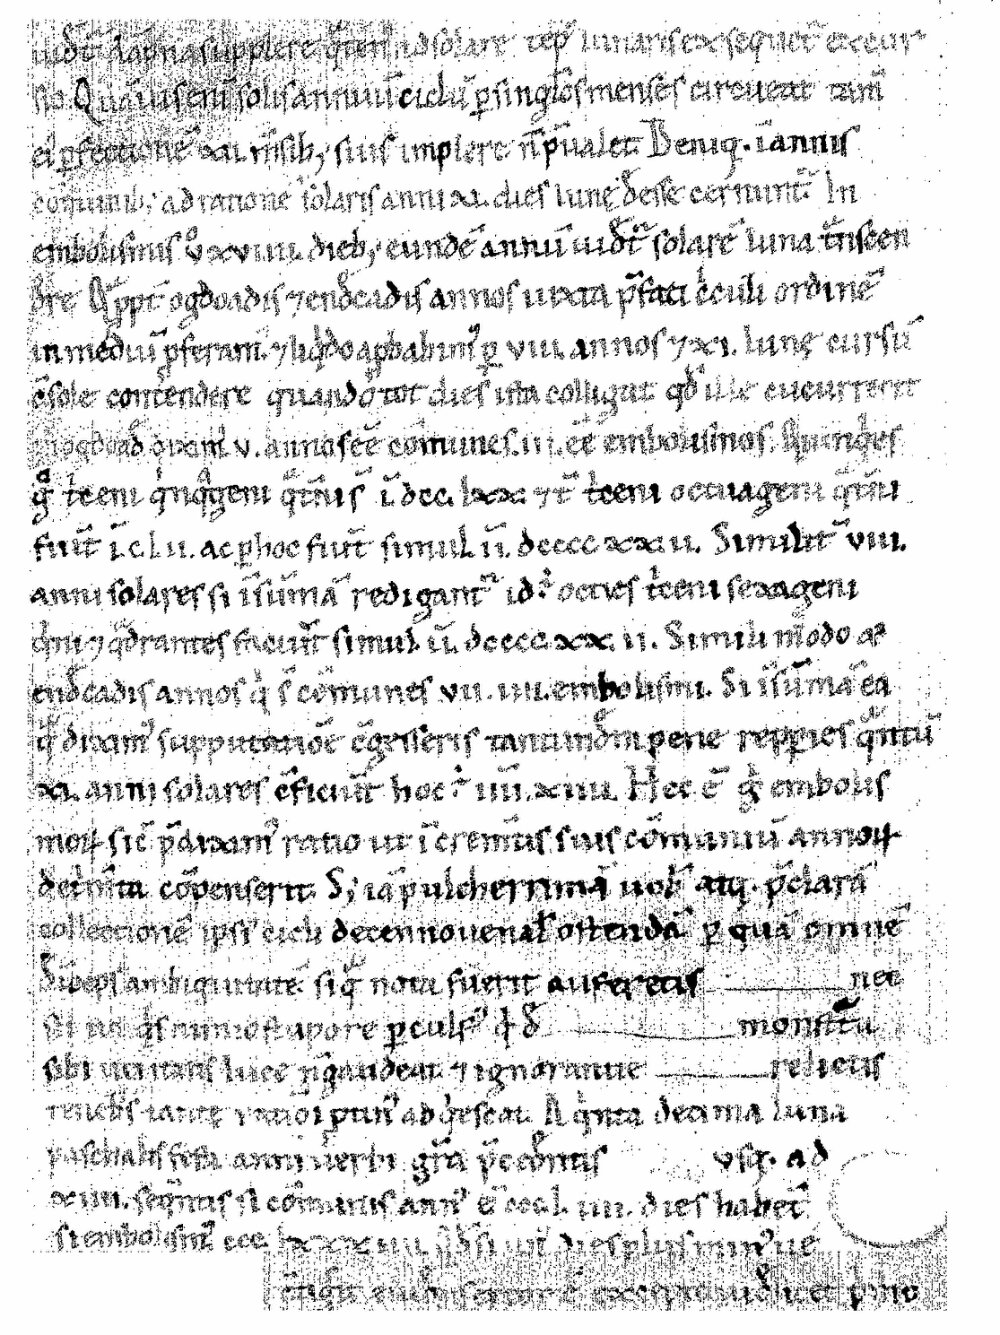 uidet̄ dāpna supplere q̄ten᾽ ad solare tēp᾽ lunaris exsequet̄ excur
sio. Quāuis eni᾽ solis annuū ciclū ꝑ singl̄os menses circueat tam̄
ei ꝑfectionē xii. m̄sib; suis implere n̄ p̄ualet Deniq. īannis
cōmunib; ad rationē solaris anni xi. dies lunę deesse cernunt̄ In
embolismis ů xviiii. dieb; eundē annū uidet̄ solarē luna t̄nscen
dere ꝓpt̄ ogdoadis ⁊ endecadis annos iuxta p̄fati cculi ordinē
in mediū ꝓferam᾽ ⁊ liq͛do aꝓbabim᾽ ꝑ viii. annos ⁊ xi. lunę cursū
c̄ sole contendere quando tot dies ista colligat qd̄ ille cucurrerit
in ogdoad᾽ dixim᾽ v. annos ēē cōmunes. iii. ēē embolismos. Quinq͛es
g̊ t͛ceni q͛nq͛geni q̄t̄nis ī. dcc. lxx. ⁊ t̄ t͛ceni octuageni q̄t̄ni
fiūt ī. c. l ii. ac ꝑ hoc fiūt simul īī. dcccc xx ii. Similit̄ viii.
anni solares si ī sūmā redigant᾽ id ÷ octies t͛ceni sexageni
q͛ni ⁊ q͛drantes faciūt simul īī. dcccc. xx. ii. Simili m̊do ac
endecadis annos q͛ s̄ cōmunes vii. iiii. embolismi. Si ī sūma ea
q͛ dixim᾽ supputatiōe c̄gesseris tantundem pene reꝑies q͛ntū
xi. anni solares c̄ficiūt hoc ÷ īīīī. xiiii. Hec ē g͛ embolis
moꝝ sic̄ p̄dixim᾽ ratio ut ī crem̄tis suis cōmuniū annoꝝ
det͛m̄ta cōpenserit S; iā pulcherrimā uob̄ atq. p̄clarā
collectionē ipsi᾽ cicli decennouenal᾽ ostendā ꝑ quā omnē
deīceps ambiguitatē si q͛ nota fuerit auferetis nec
stupore ꝑculs᾽ q͛ d̄ monst̄ta
sibi ueritatis luce n̄ gaudeat ⁊ ignorantie relictis
tenebris adq͛escat. A q͛nta decima luna
paschalis festi anni uerbi gr̄a p̄cedentis vsq. ad
xiiii. seq̄ntis si cōmunis ann᾽ ē ccc l. iiii. dies habet
si embolism᾽ ccc. lxxxiiii. Qd̄ si uñ dies plus min᾽ ue